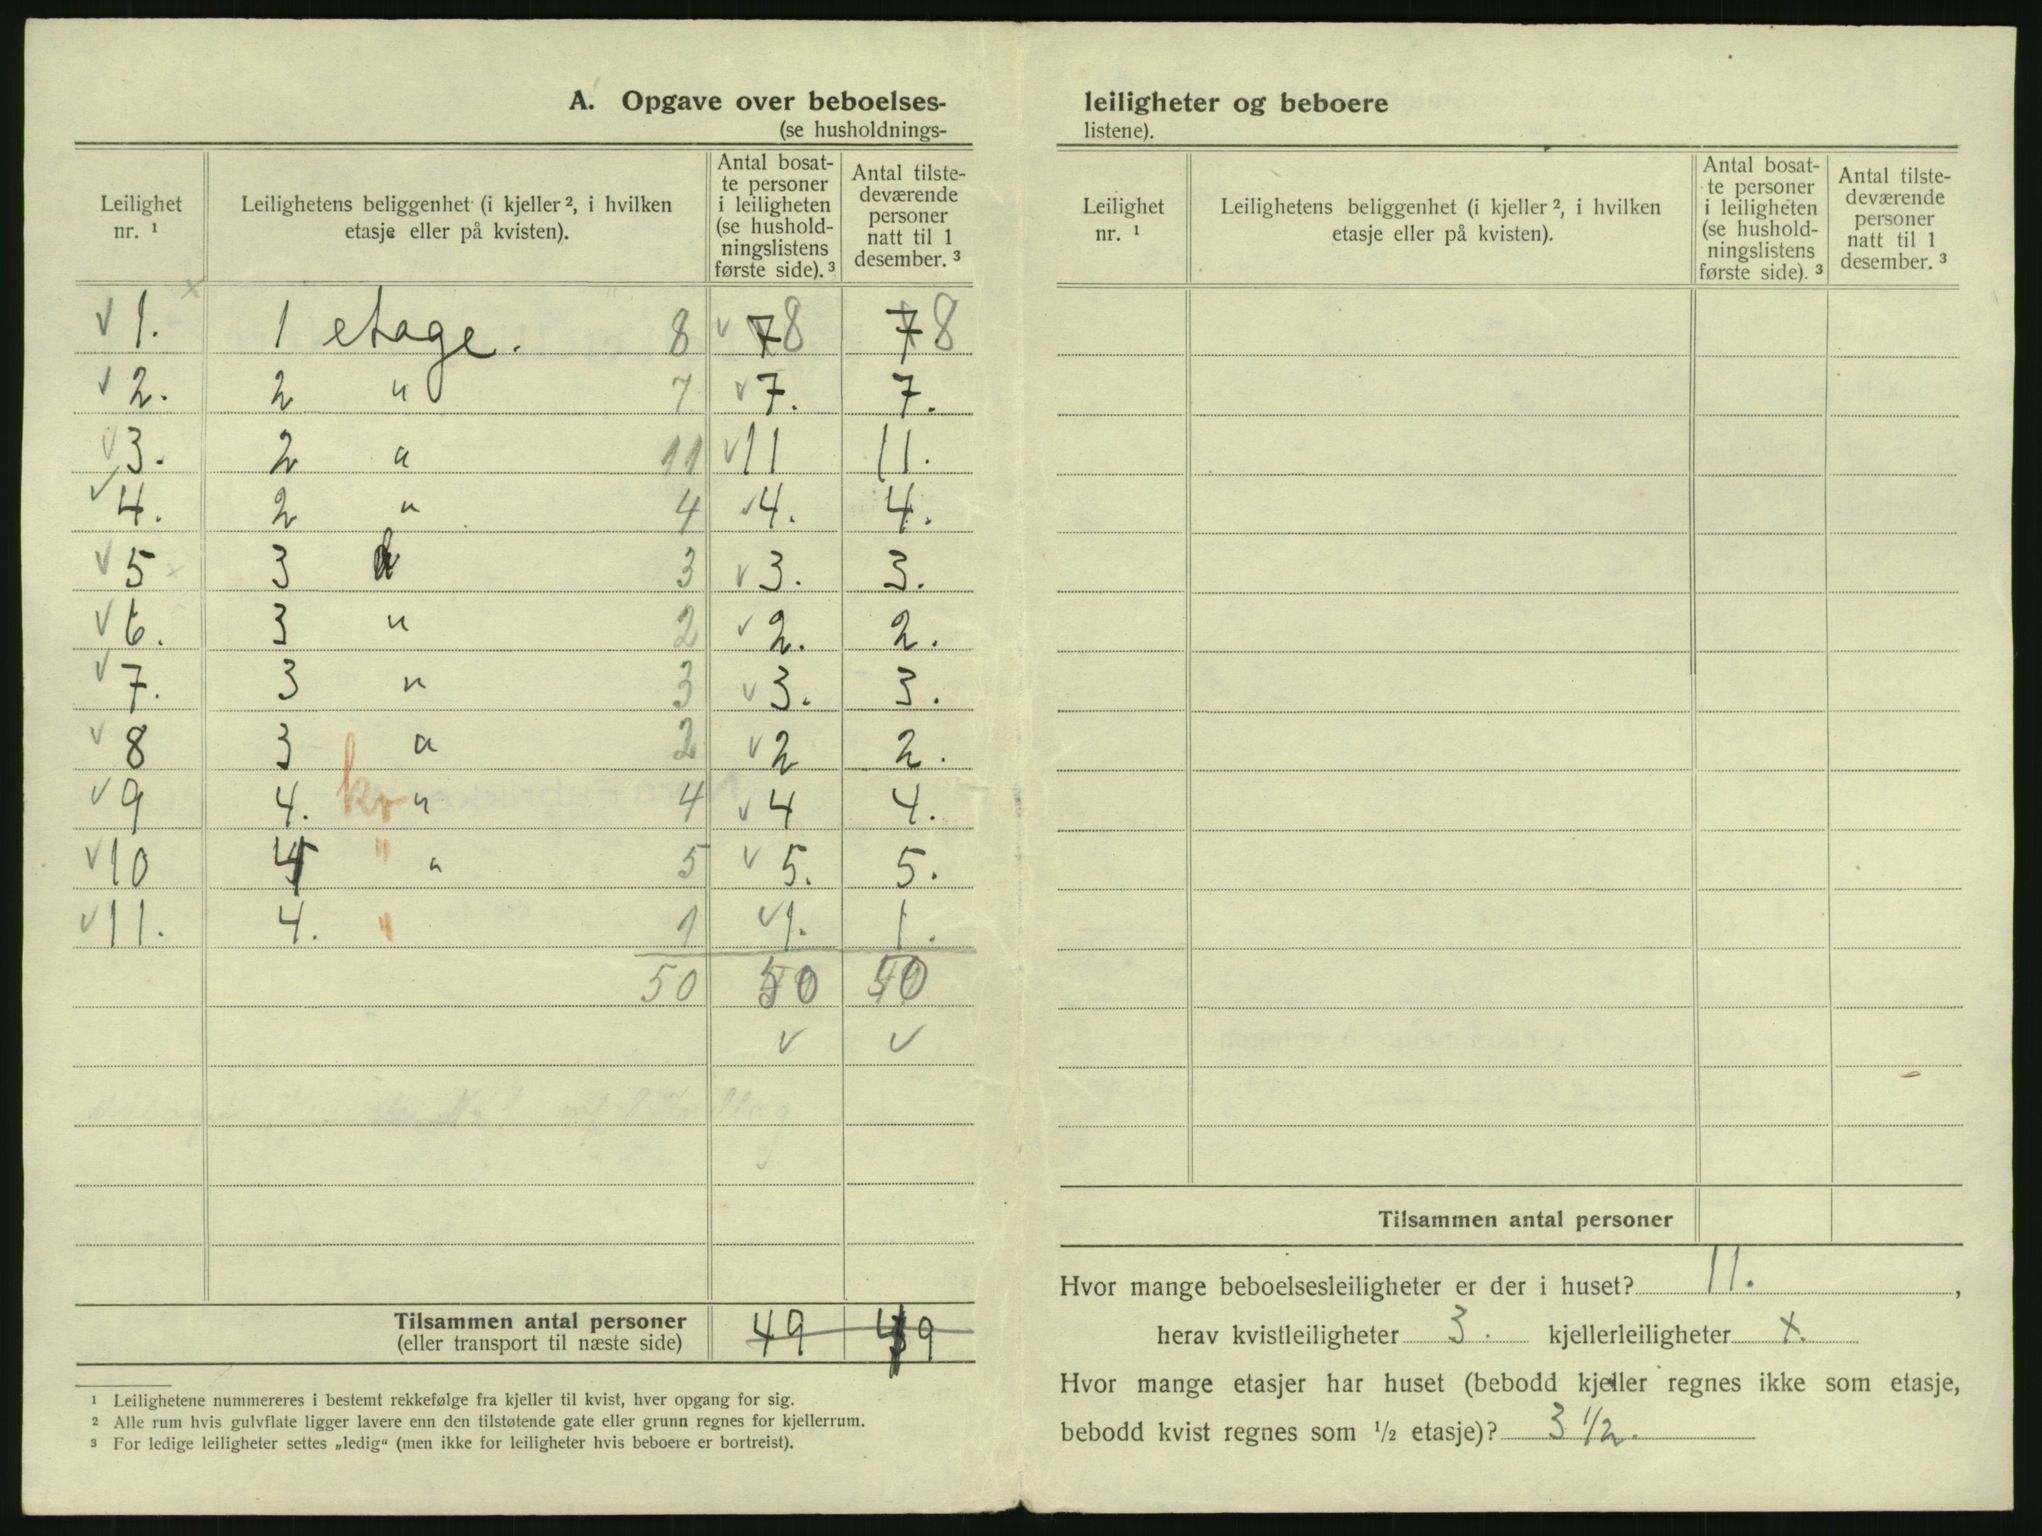 A. Opgave over beboelses-
(se husholdnings-
Leilighet nr. 1 | Leilighetens beliggenhet (i kjeller 2, i hvilken etasje eller på kvisten). | Antal bosatte personer i leiligheten (se husholdningslistens første side). 3 | Antal tilstedeværende personer natt til 1 desember. 3
√ 1. × 1 etage. 8 √ 7 8 7 8
√ 2. 2 " 7 √ 7. 7.
√ 3. 2 " 11 √ 11 11.
√ 4. 2 " 4 √ 4. 4.
√ 5 3 " 3 √ 3. 3.
√ 6. 3 " 2 √ 2. 2.
√ 7. 3 " 3 √ 3. 3.
√ 8 3 " 2 √ 2 2.
√ 9 4. kv " 4 √ 4 4.
√ 10 4 " " 5 √ 5. 5.
√ 11. 4. " 1 √ 1. 1.
50 50 50
√ √
Tilsammen antal personer 49 49
(eller transport til næste side)
1 Leilighetene nummereres i bestemt rekkefølge fra kjeller til kvist, hver opgang for sig.
2 Alle rum hvis gulvflate ligger lavere enn den tilstøtende gate eller grunn regnes for kjellerrum.
3 For ledige leiligheter settes „ledig“ (men ikke for leiligheter hvis beboere er bortreist).
leiligheter og beboere
listene).
Leilighet nr. 1 | Leilighetens beliggenhet (i kjeller 2, i hvilken etasje eller på kvisten). | Antal bosatte personer i leiligheten (se husholdningslistens første side). 3 | Antal tilstedeværende personer natt til 1 desember. 3
Tilsammen antal personer
Hvor mange beboelsesleiligheter er der i huset? 11. ,
herav kvistleiligheter 3. kjellerleiligheter x.
Hvor mange etasjer har huset (bebodd kjeller regnes ikke som etasje,
bebodd kvist regnes som 1/2 etasje)? 3 1/2.